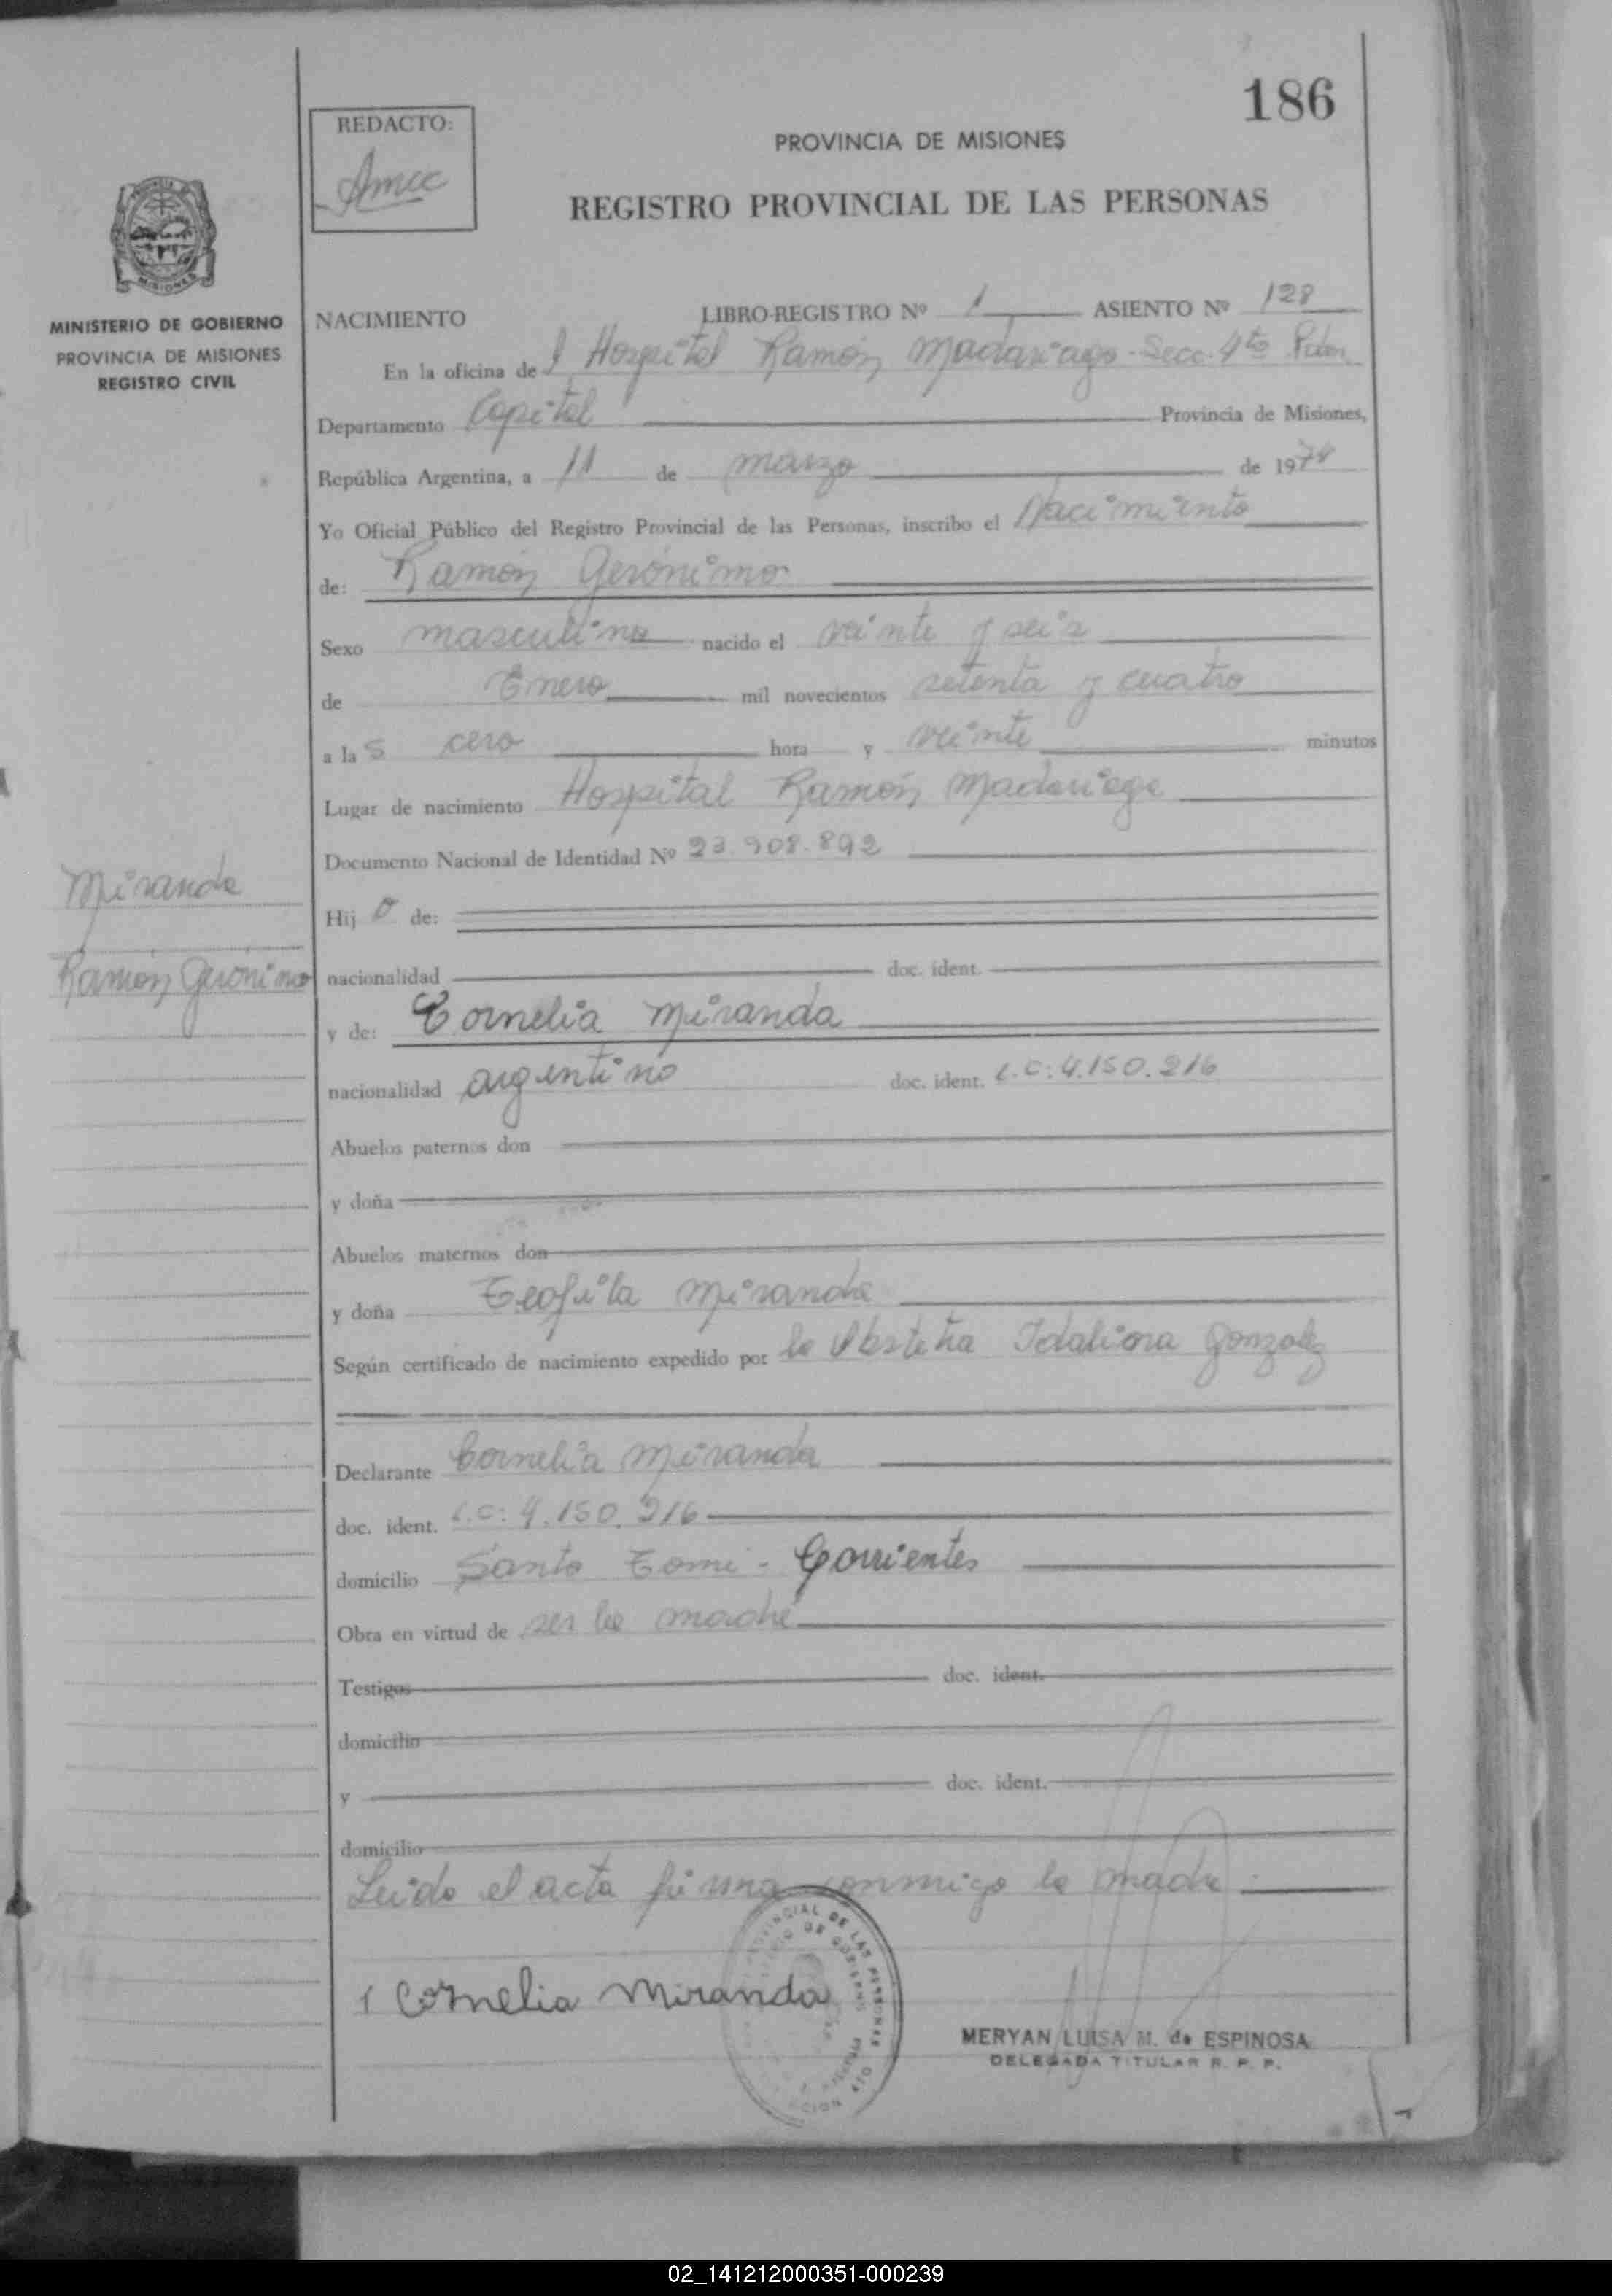 186
REDACTO:
PROVINCIA DE MISIONES
REGISTRO PROVINCIAL DE LAS PERSONAS
MINISTERIO DE GOBIERNO
PROVINCIA DE MISIONES
REGISTRO CIVIL
NACIMIENTO LIBRO-REGISTRO Nº 1 ASIENTO Nº 128
En la oficina del Hospital Ramón Madariaga - Secc. 4ta
Departamento Capital Provincia de Misiones,
República Argentina, a 11 de marzo de 1974
Yo Oficial Público del Registro Provincial de las Personas, inscribo el Nacimiento
de: Ramón Gerónimo
Sexo masculino nacido el veinte y seis
de Enero mil novecientos setenta y cuatro
a las cero hora y veinte minutos
Lugar de nacimiento Hospital Ramón Madariaga
Documento Nacional de Identidad Nº 23.908.892
Miranda
Hijo de:
Ramón Gerónimo
nacionalidad doc. ident.
y de: Cornelia Miranda
nacionalidad argentino doc. ident. L.C: 4.150.216
Abuelos paternos don
y doña
Abuelos maternos don
y doña Teofila Miranda
Según certificado de nacimiento expedido por la Obstetra Gonzalez
Declarante Cornelia Miranda
doc. ident. L.C: 4.150.216
domicilio Santo Tomé - Corrientes
Obra en virtud de ser la madre
Testigos doc. ident.
domicilio
y doc. ident.
domicilio
Leido el acta firma conmigo la madre
Cornelia Miranda
MERYAN LUISA M. de ESPINOSA
DELEGADA TITULAR R. P. P.
02_141212000351-000239